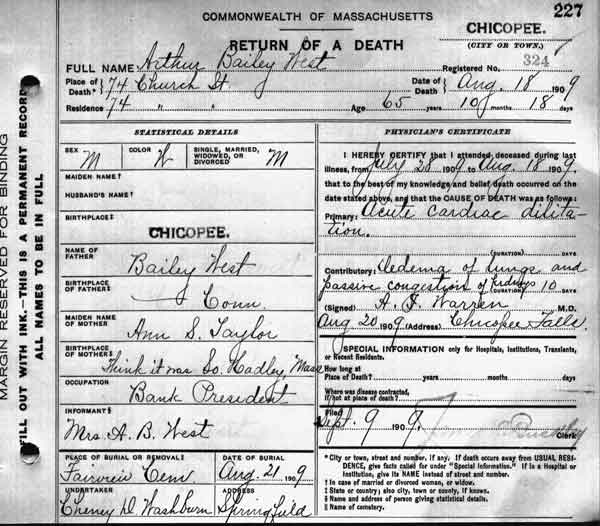 227
COMMONWEALTH OF MASSACHUSETTS
CHICOPEE.
RETURN OF A DEATH
(CITY OR TOWN.)
FULL NAME Arthur Bailey West
Registered No. 324
Place of Death* } 74 Church St.
Date of Death } Aug. 18 1909
Residence 74 " "
Age 65 years 10 months 18 days
STATISTICAL DETAILS
SEX M
COLOR W
SINGLE, MARRIED, WIDOWED, OR DIVORCED M
MAIDEN NAME†
HUSBAND'S NAME†
BIRTHPLACE‡
CHICOPEE.
NAME OF FATHER
Bailey West
BIRTHPLACE OF FATHER‡
Conn
MAIDEN NAME OF MOTHER
Ann S. Taylor
BIRTHPLACE OF MOTHER‡
Think it was So. Hadley, Mass
OCCUPATION
Bank President
INFORMANT§
Mrs A. B. West
PLACE OF BURIAL OR REMOVAL‖
Fairview Cem
DATE OF BURIAL
Aug. 21 1909
UNDERTAKER
Cheney D. Washburn
ADDRESS
Springfield
PHYSICIAN'S CERTIFICATE
I HEREBY CERTIFY that I attended deceased during last
illness, from July 28 1909 to Aug. 18 1909,
that to the best of my knowledge and belief death occurred on the
date stated above, and that the CAUSE OF DEATH was as follows:
Primary: Acute cardiac dilita-
tion.
(DURATION) DAYS
Contributory: Oedema of lungs and
passive congestion of kidneys 10
(DURATION) DAYS
(Signed) A. J. Warren M.D.
Aug 20 1909 (Address) Chicopee Falls
SPECIAL INFORMATION only for Hospitals, Institutions, Transients,
or Recent Residents.
How long at
Place of Death? years months days
Where was disease contracted,
if not at place of death?
Filed
Sept. 9 1909
Clerk
* City or town, street and number, if any. If death occurs away from USUAL RESI-
DENCE, give facts called for under "Special Information." If in a Hospital or
Institution, give its NAME instead of street and number.
† In case of married or divorced woman, or widow.
‡ State or country; also city, town or county, if known.
§ Name and address of person giving statistical details.
‖ Name of cemetery.
MARGIN RESERVED FOR BINDING
FILL OUT WITH INK.—THIS IS A PERMANENT RECORD
ALL NAMES TO BE IN FULL